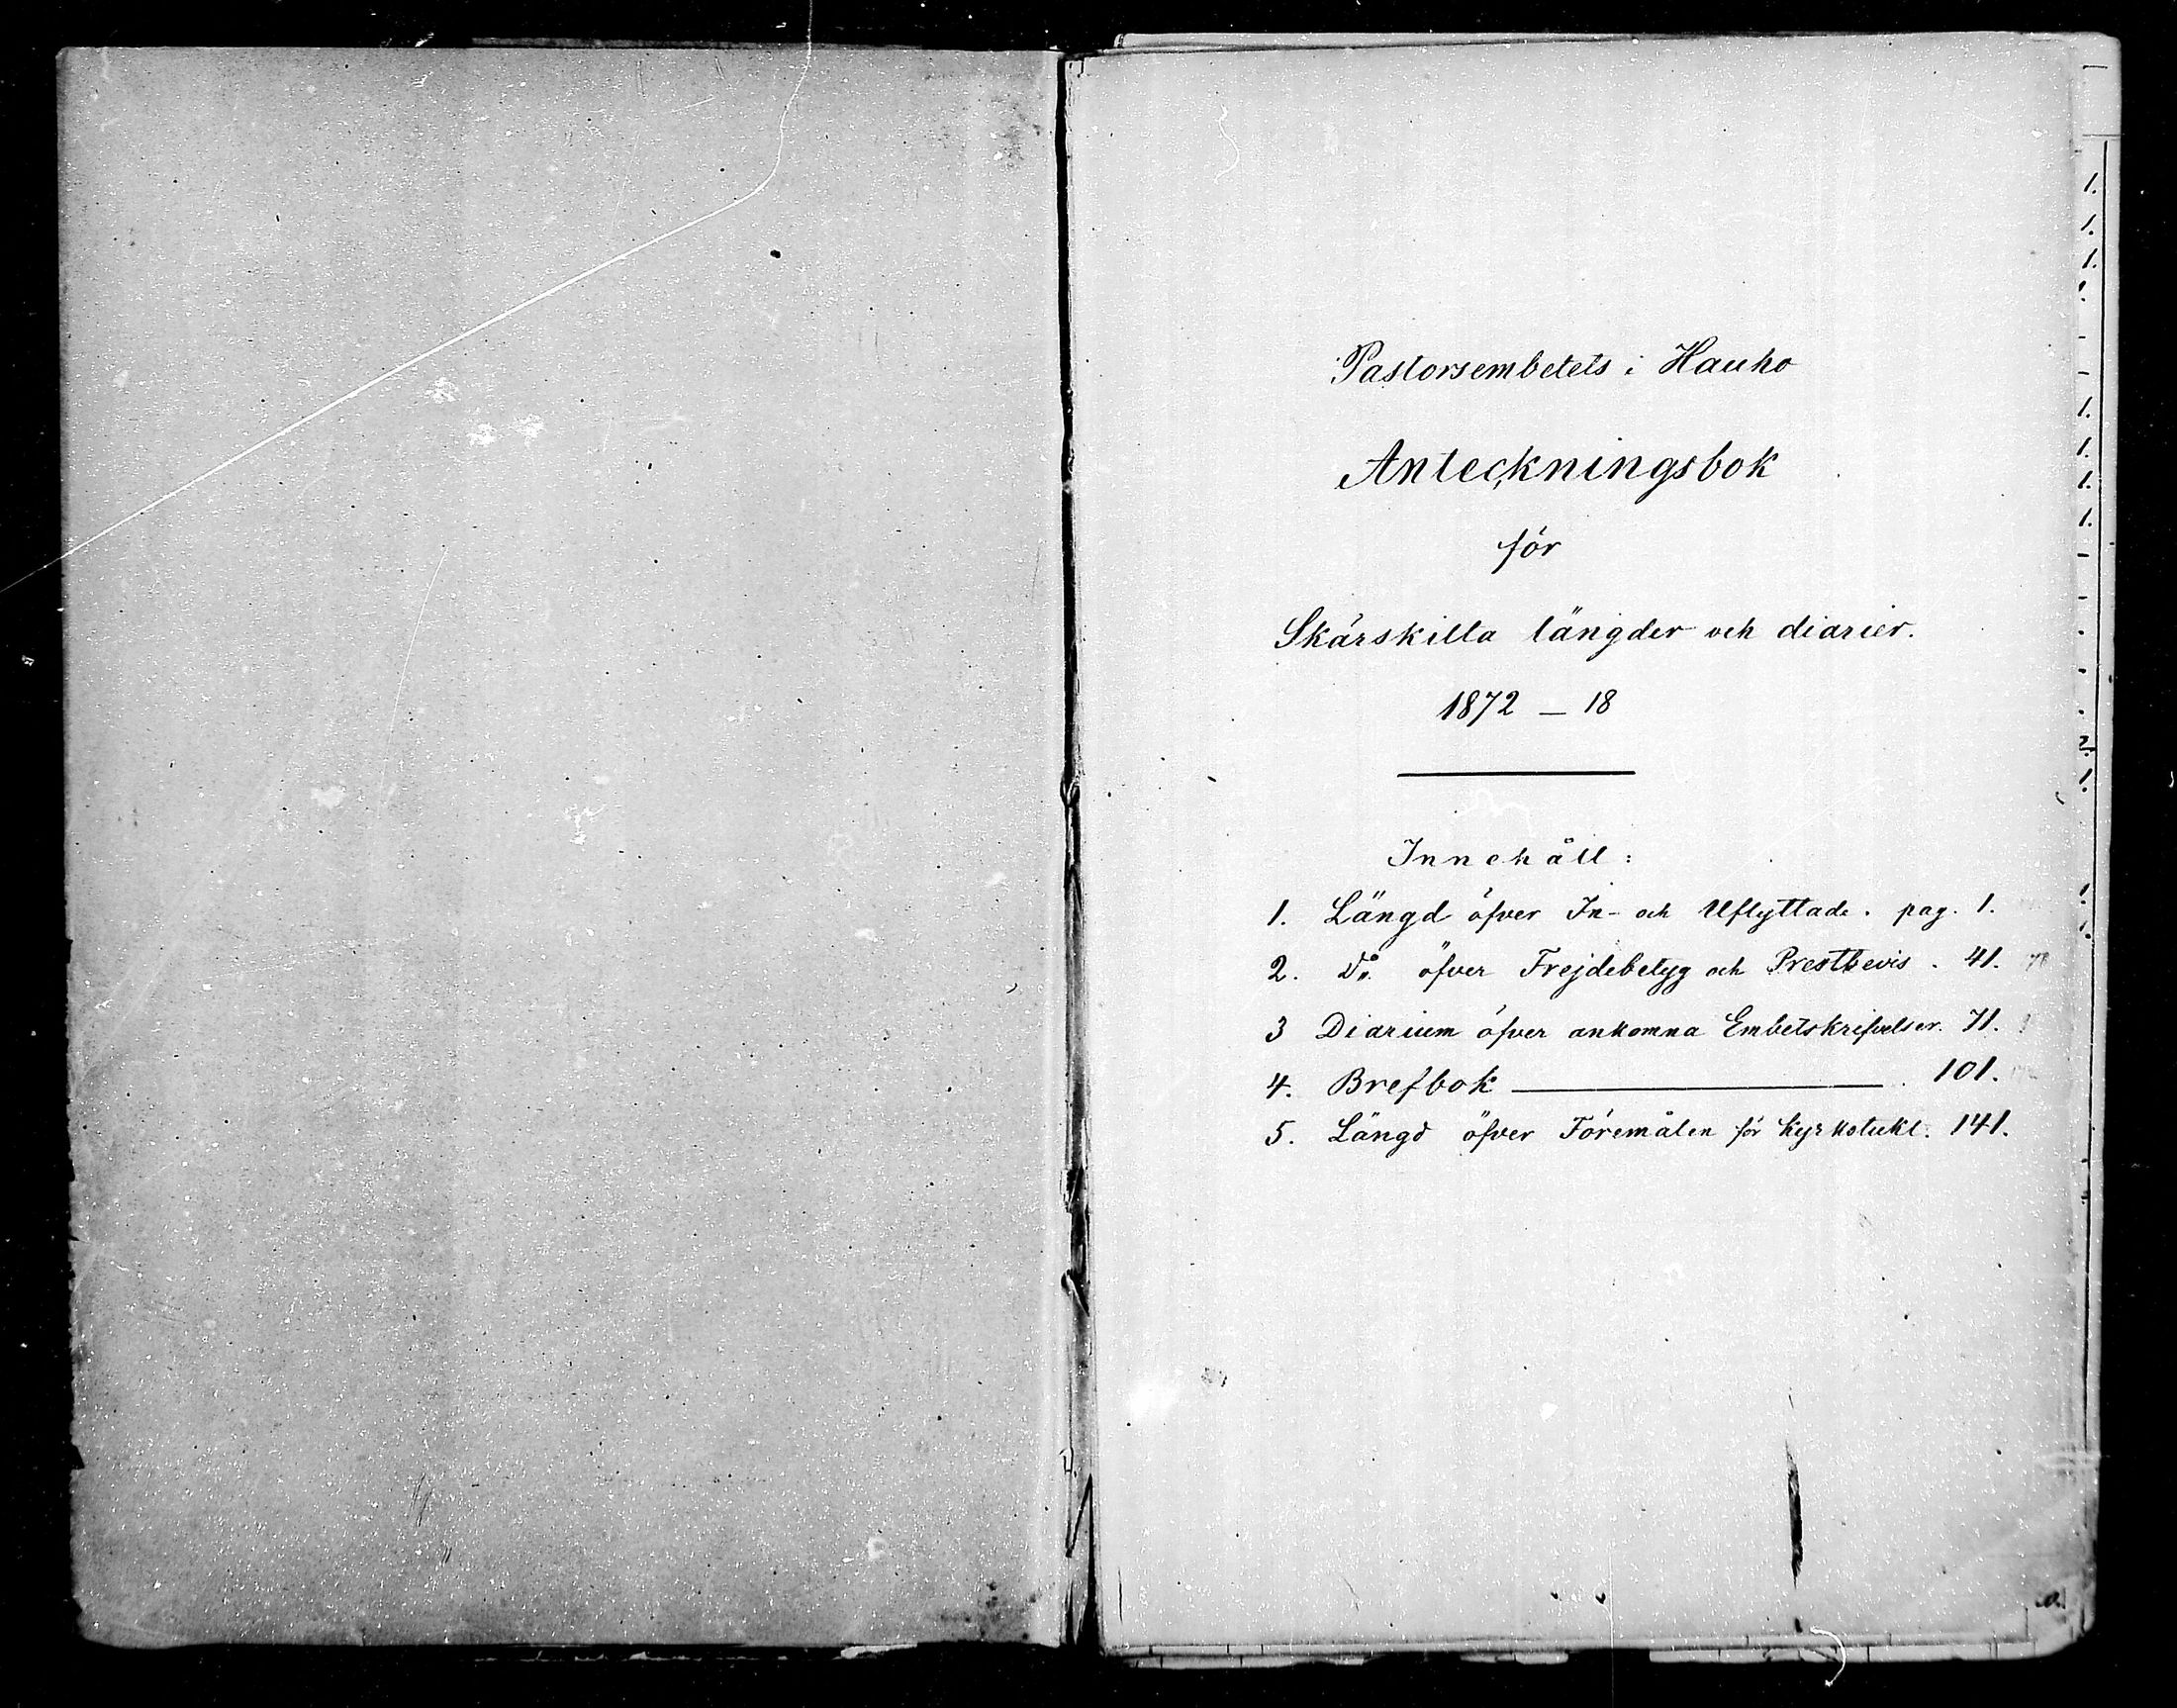 Pastorsembetets i Hauho
Anteckningsbok
för
Skärskilla längder och diarier.
1872 – 18
Innehåll:
1. Längd öfver In- och Uflyttade. pag. 1.
2. Do. öfver Frejdebetyg och Prestbevis. 41.
3 Diarium öfver ankomna Embetskrifvelser. 71.
4. Brefbok — 101.
5. Längd öfver Föremålen för Kyrkotukt. 141.